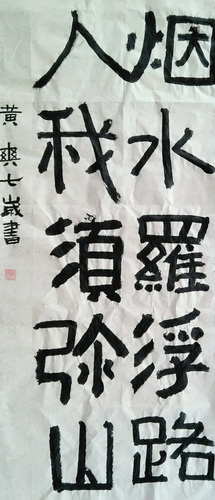 烟水羅浮路
人我須弥山
黄爽七歲書